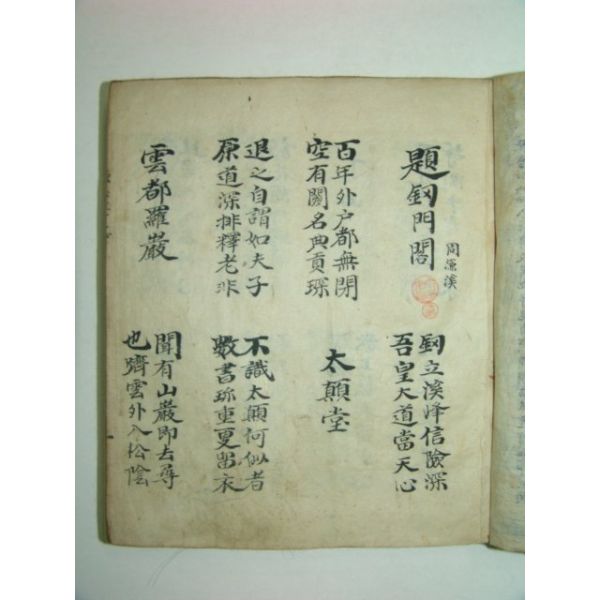 題釰門閣
周濂溪
釰立溪浲信險深
吾皇大道當天心
百年外户都無閉
空有關名典貢琛
太顛堂
退之自謂如夫子
原道深排釋老非
不識太顛何似者
數書珎重更留衣
雲都羅巖
聞有山巖即去尋
也躋雲外入松陰